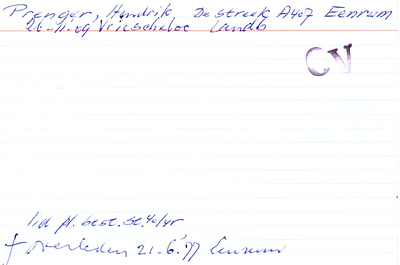 Prenger, Hendrik De streek A407 Eenrum
26-11-09 Vriescheloo Landb
CN
lid pl. best. St. 40/41
† overleden 21-6-'77 Eenrum